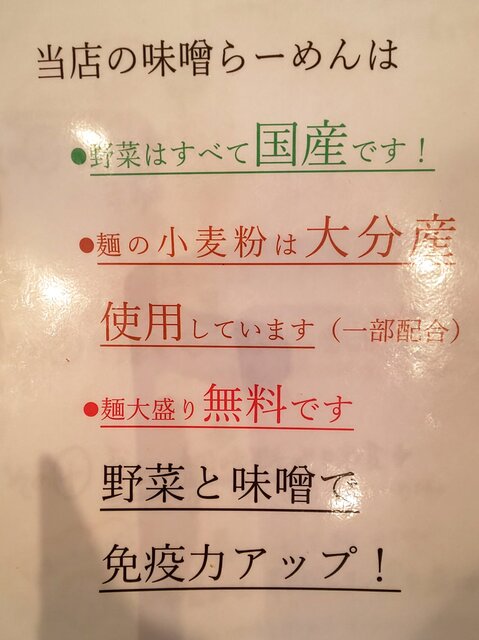 当店の味噌らーめんは
●野菜はすべて国産です！
●麺の小麦粉は大分産
使用しています（一部配合）
●麺大盛り無料です
野菜と味噌で
免疫力アップ！